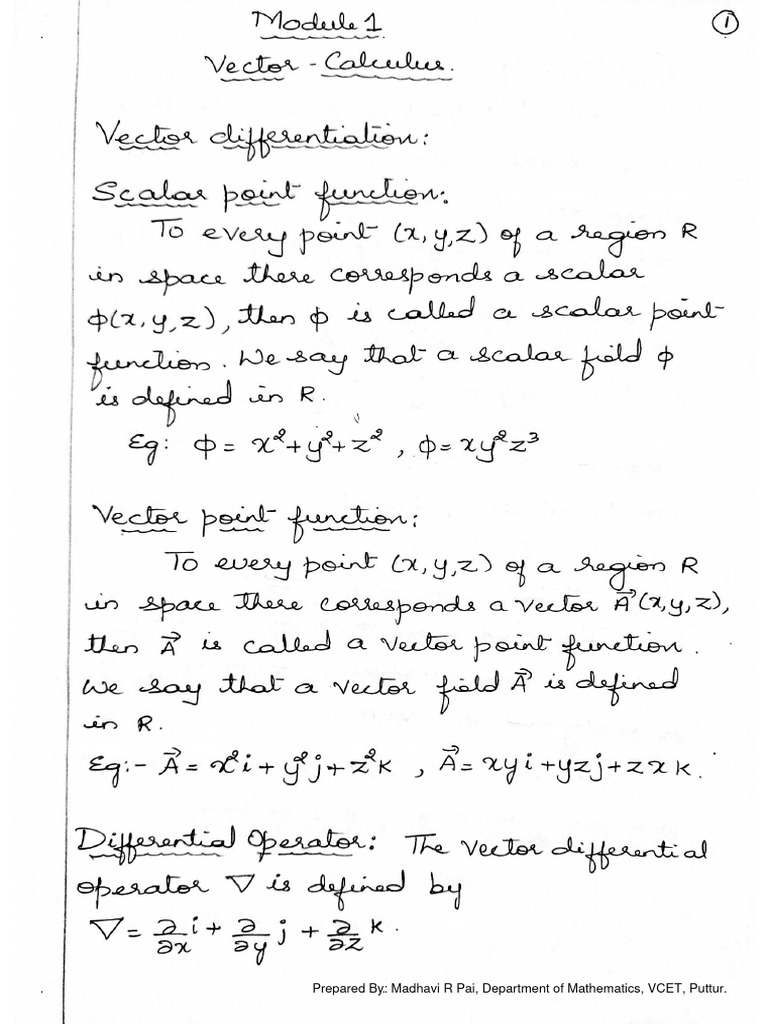 Module 1
①
Vector - Calculus.
Vector differentiation:
Scalar point function:
To every point (x, y, z) of a region R
in space there corresponds a scalar
ϕ(x, y, z), then ϕ is called a scalar point
function. We say that a scalar field ϕ
is defined in R.
Eg: ϕ = x²+y²+z² , ϕ = xy²z³
Vector point function:
To every point (x, y, z) of a region R
in space there corresponds a vector A⃗(x, y, z),
then A⃗ is called a vector point function.
We say that a vector field A⃗ is defined
in R.
Eg:- A⃗ = x²i + y²j + z²k , A⃗ = xyi + yzj + zxk.
Differential Operator: The vector differential
operator ∇ is defined by
∇ = ∂/∂x i + ∂/∂y j + ∂/∂z k.
Prepared By.: Madhavi R Pai, Department of Mathematics, VCET, Puttur.